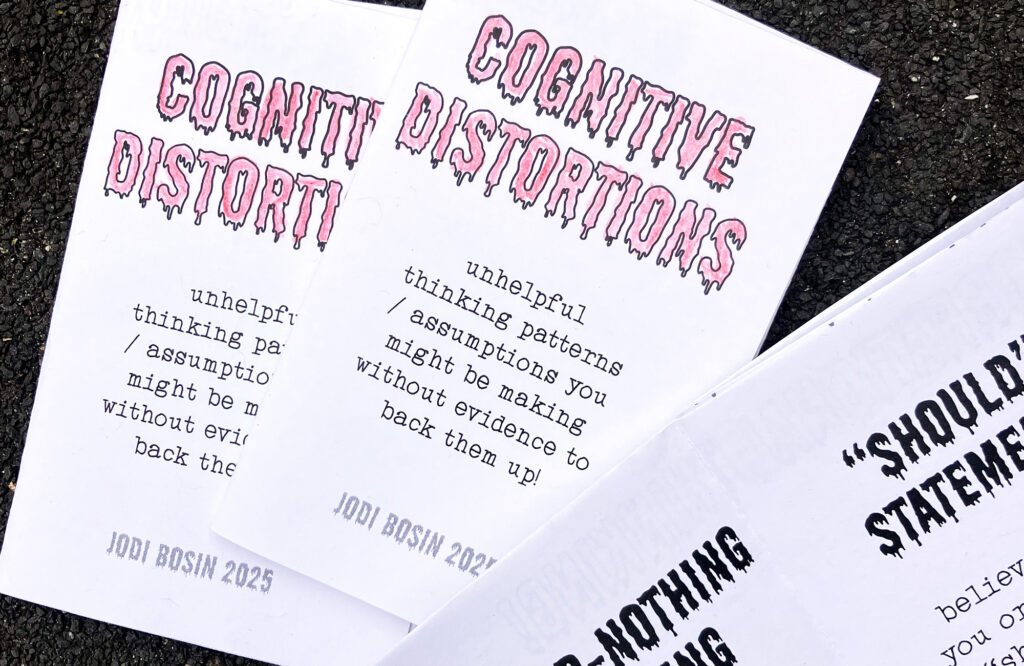 COGNITI
DISTORTI
unhelpfu
thinking pa
/ assumptio
might be m
without evi
back the
JODI BOSIN 2025
COGNITIVE
DISTORTIONS
unhelpful
thinking patterns
/ assumptions you
might be making
without evidence to
back them up!
JODI BOSIN 2025
-NOTHING
NG
“SHOULD”
STATEME
believ
you or
“sh